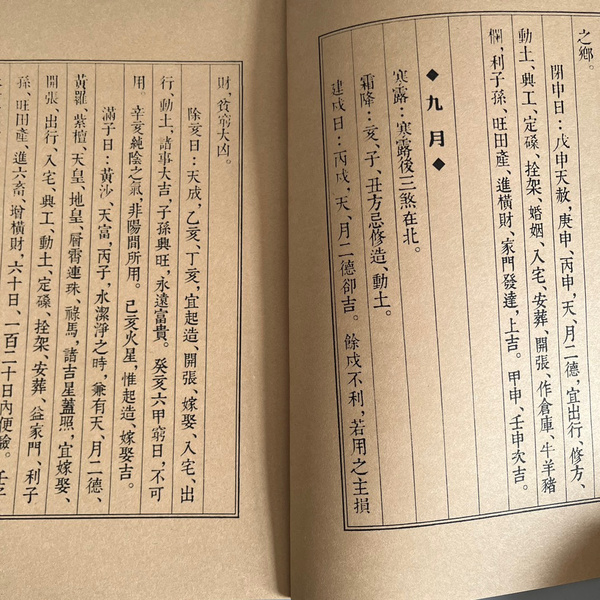 之鄉。
閉申日：戊申天赦，庚申、丙申，天、月二德，宜出行、修方、
動土、興工、定磉、拴架、婚姻、入宅、安葬、開張、作倉庫、牛羊豬
欄，利子孫、旺田產、進橫財、家門發達，上吉。甲申、壬申次吉。
◆九月◆
寒露：寒露後三煞在北。
霜降：亥、子、丑方忌修造、動土。
建戌日：丙戌，天、月二德卻吉。餘戌不利，若用之主損
財、貧窮大凶。
除亥日：天成，乙亥、丁亥，宜起造、開張、嫁娶、入宅、出
行、動土，諸事大吉，子孫興旺，永遠富貴。癸亥六甲窮日，不可
用。辛亥純陰之氣，非陽間所用。己亥火星，惟起造、嫁娶吉。
滿子日：黃沙、天富，丙子，水潔淨之時，兼有天、月二德、
黃羅、紫檀、天皇、地皇、層霄連珠、祿馬，諸吉星蓋照，宜嫁娶、
開張、出行、入宅、興工、動土、定磉、拴架、安葬、益家門、利子
孫、旺田產、進六畜、增橫財，六十日、一百二十日內便驗。壬子